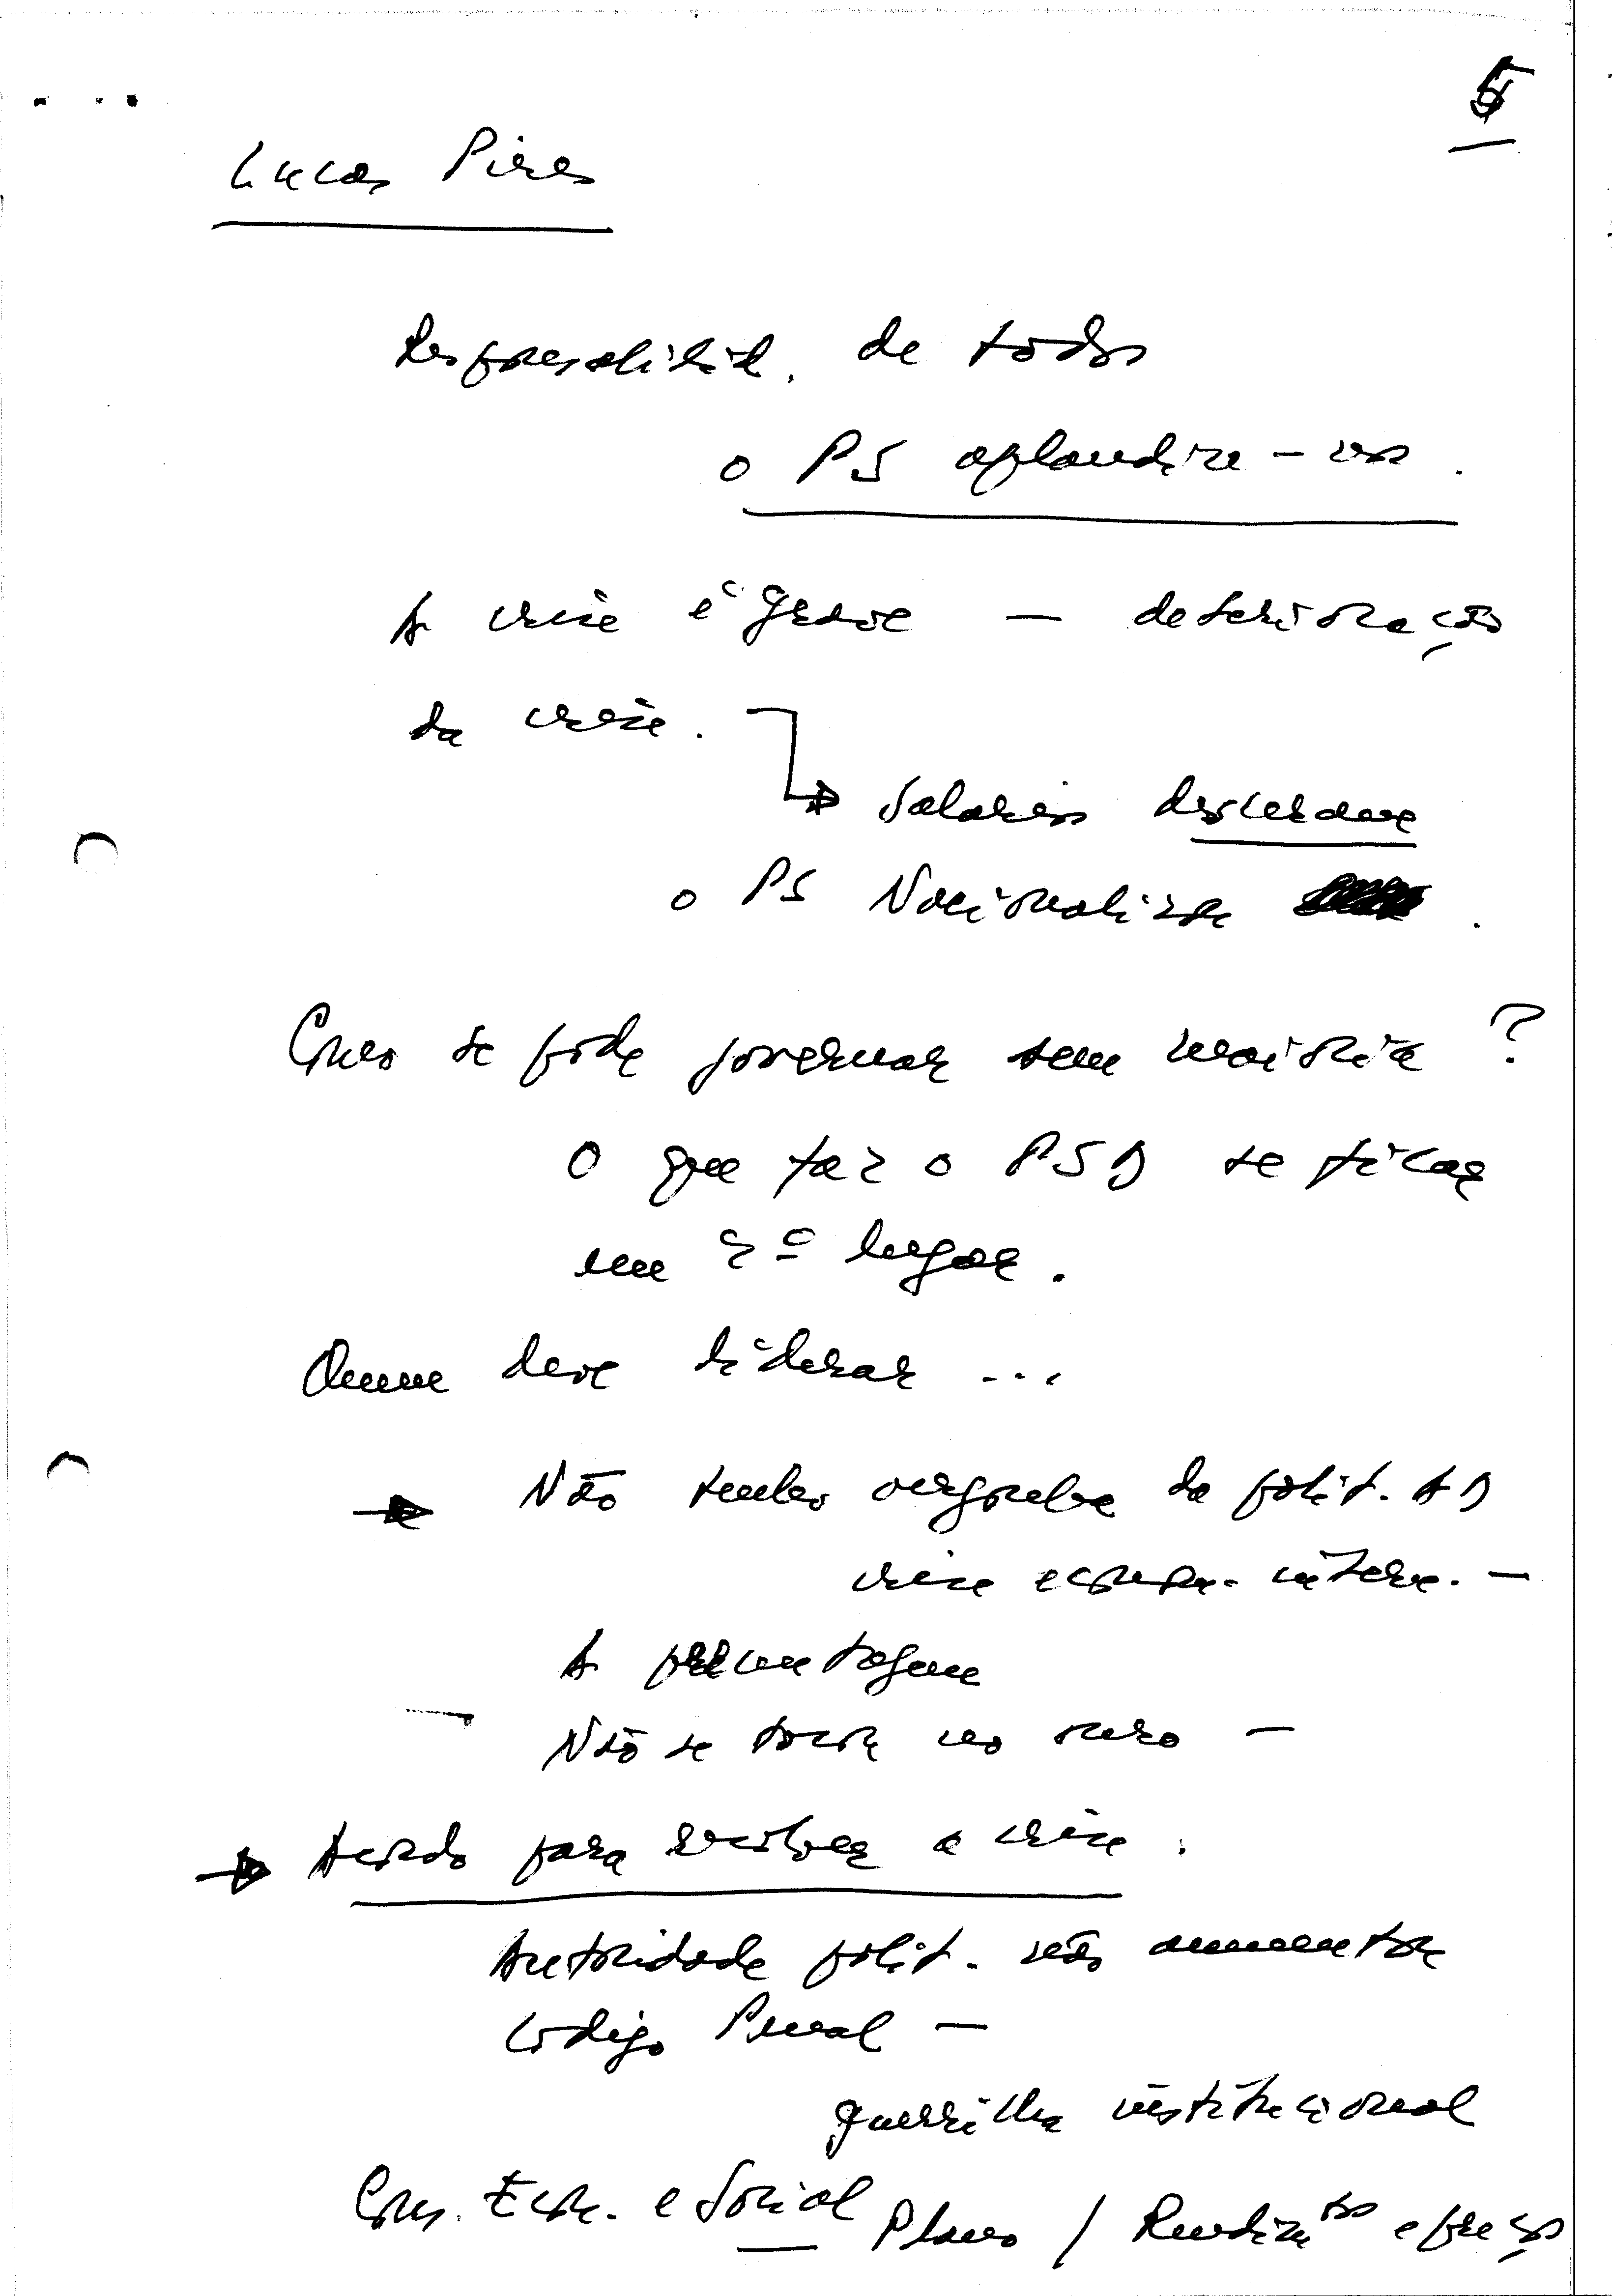 5
Lucas Pires
Responsabilid. de todos
o PS aplaudira-vos.
A crise é grave — deterioração
da crise.
Salários desceram
o PS Nacionalizou
Como se pode governar sem maioria?
O que faz o PSD se ficar
em 2º lugar.
Quem deve liderar ...
Não tenho vergonha da polit. AD
crise econom. interna. —
A percentagem
Não se toca no ouro —
Acordo para resolver a crise.
Autoridade polit. não aumentou
Código Penal —
guerrilha institucional
Cons. Econ. e Social Plano / Rendimtos e preços